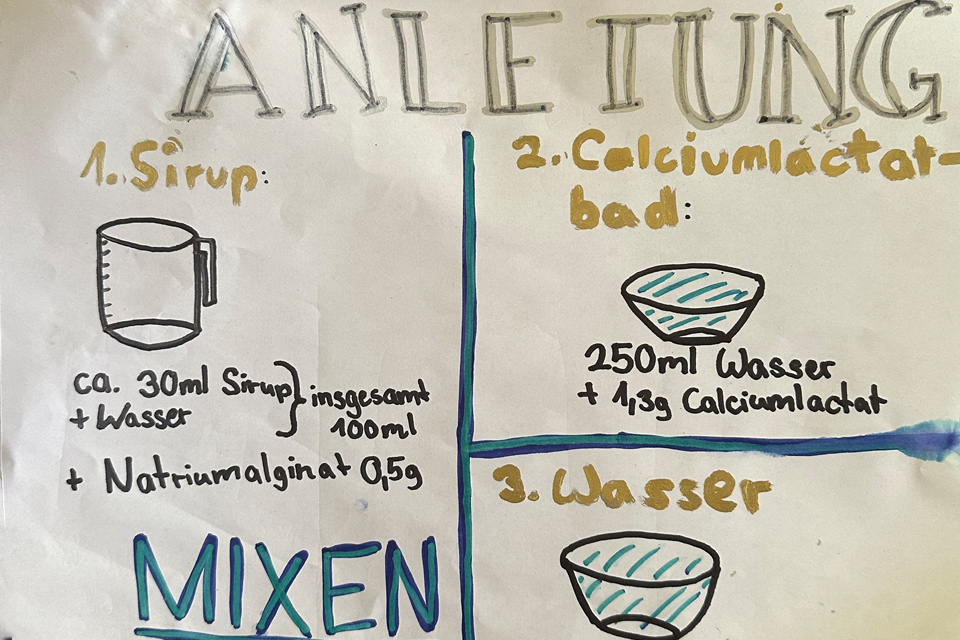 ANLEITUNG
1. Sirup:
ca. 30ml Sirup } insgesamt
+ Wasser 100ml
+ Natriumalginat 0,5g
MIXEN
2. Calciumlactat-
bad:
250ml Wasser
+ 1,3g Calciumlactat
3. Wasser